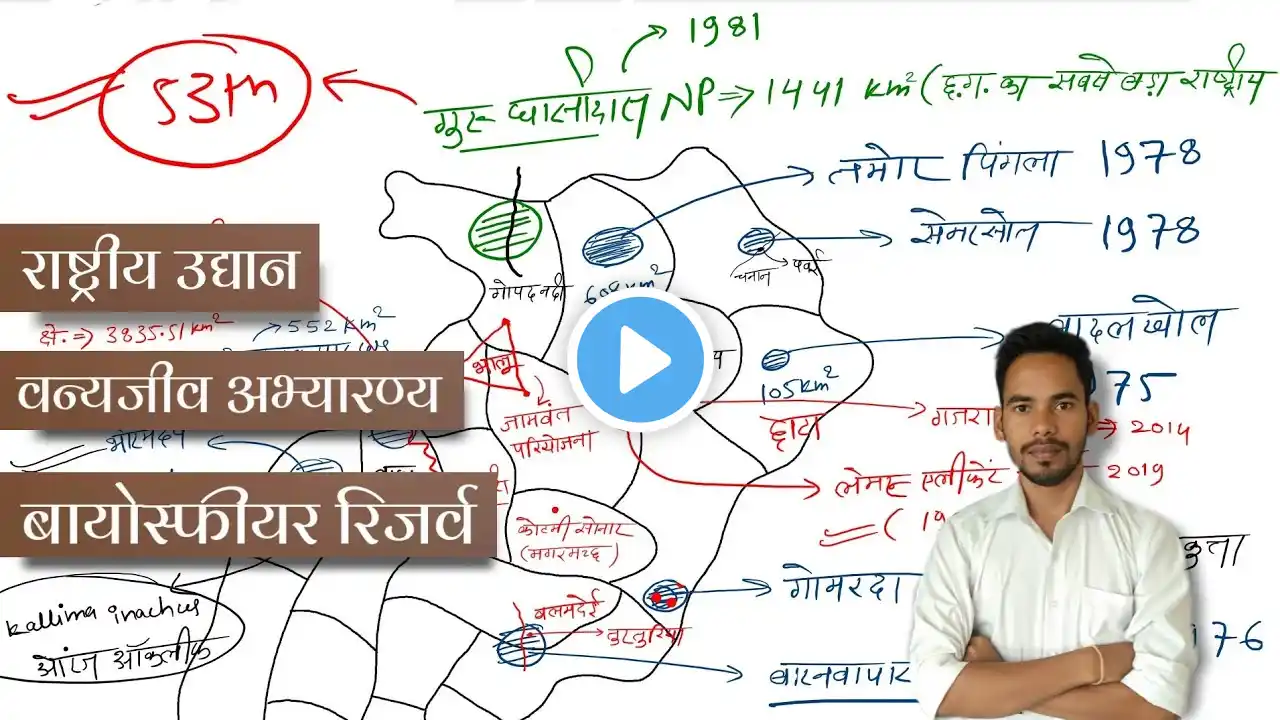 1981
53th
गुरू घासीदास NP ⇒ 1441 km² ( छ.ग. का सबसे बड़ा राष्ट्रीय
तमोर पिंगला 1978
सेमरसोत 1978
राष्ट्रीय उद्यान
चनान पवई
गोपद नदी 608 km²
क्षे. ⇒ 3835.51 km²
552 km²
बादलखोल
भालू
105 km²
1975
वन्यजीव अभ्यारण्य
छोटा
जामवंत
परियोजना
⇒ 2014
लेमरू एलीफेंट 2019
बायोस्फीयर रिजर्व
कोटमी सोनार
(मगरमच्छ)
गोमरदा
kallima inachus
ऑरेंज ऑकलीफ
बलमदेई
76
बारनवापार